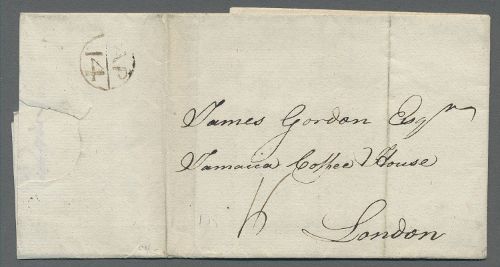 AP
14
James Gordon Esqr
Jamaica Coffee House
London